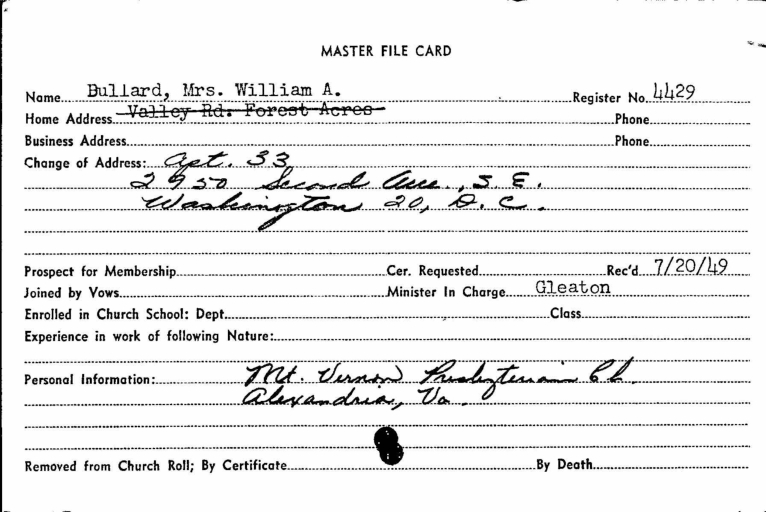 MASTER FILE CARD
Name Bullard, Mrs. William A. Register No. 4429
Home Address Valley Rd. Forest Acres Phone
Business Address Phone
Change of Address: Apt. 33
2950 Second Ave., S.E.
Washington 20, D.C.
Prospect for Membership Cer. Requested Rec'd 7/20/49
Joined by Vows Minister In Charge Gleaton
Enrolled in Church School: Dept. Class
Experience in work of following Nature:
Personal Information: Mt. Vernon Presbyterian Ch.
Alexandria, Va.
Removed from Church Roll; By Certificate By Death